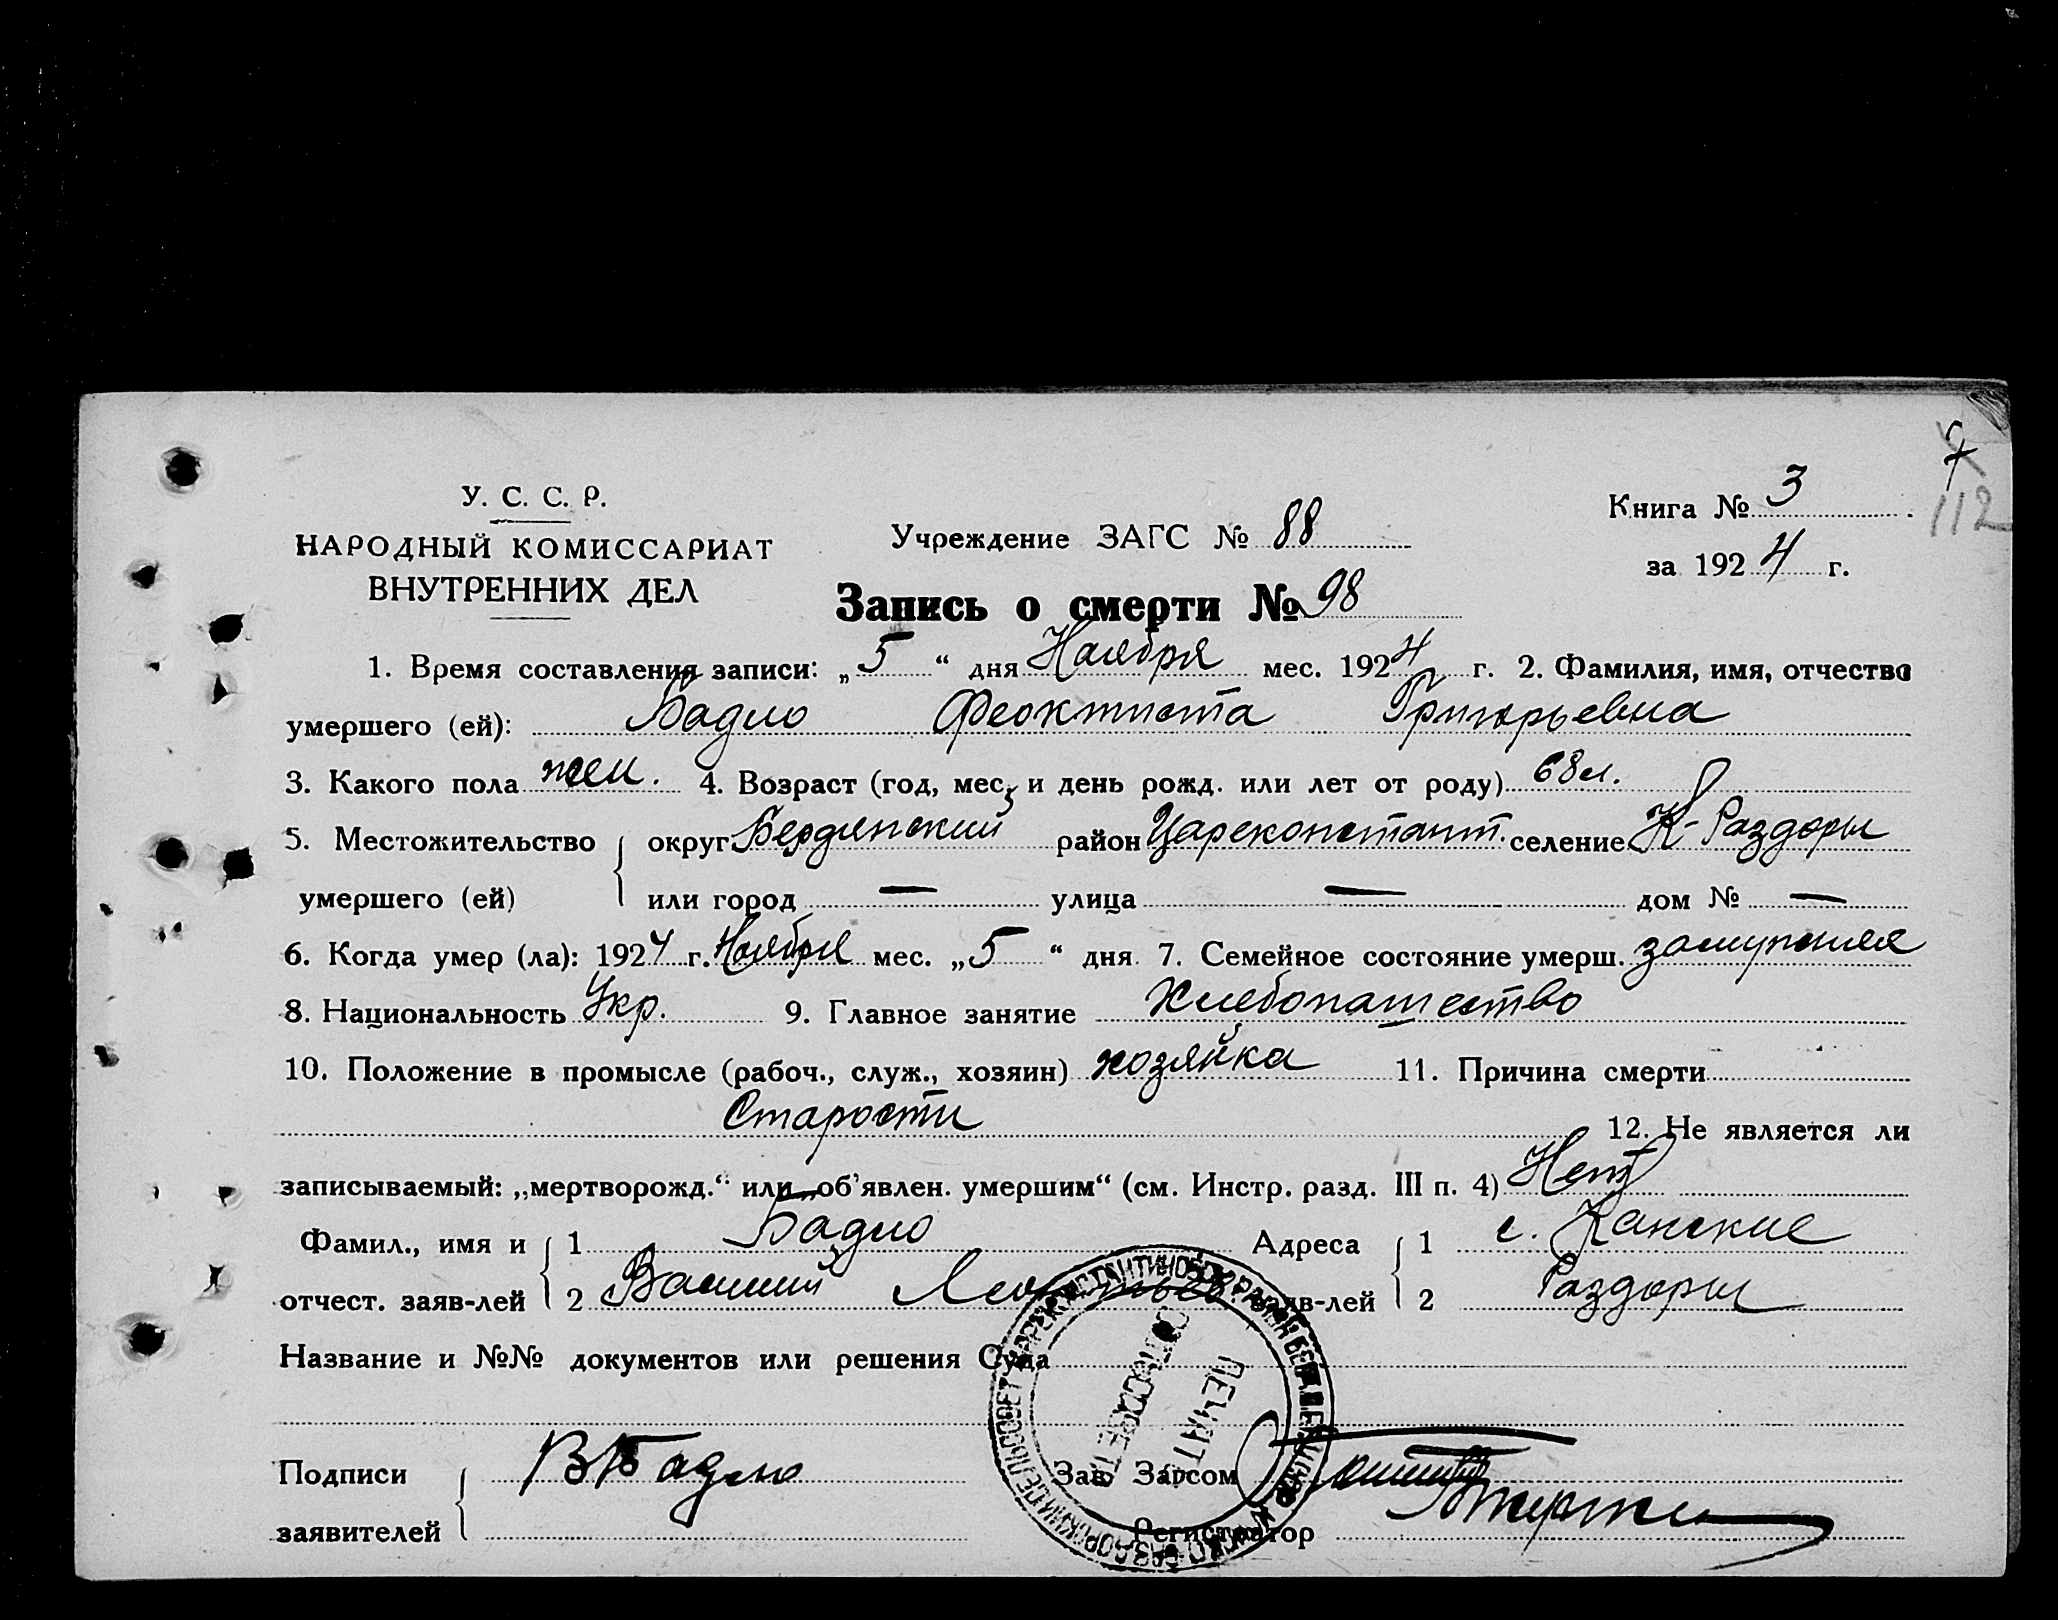 7
112
У. С. С. Р.
НАРОДНЫЙ КОМИССАРИАТ
ВНУТРЕННИХ ДЕЛ
Учреждение ЗАГС № 88
Книга № 3
за 1924 г.
Запись о смерти № 98
1. Время составления записи: „5“ дня Ноября мес. 1924 г. 2. Фамилия, имя, отчество
умершего (ей): Бадло Феоктиста Григорьевна
3. Какого пола жен. 4. Возраст (год, мес. и день рожд. или лет от роду) 68 л.
5. Местожительство округ Бердянский район Цареконстант. селение К-Раздоры
умершего (ей) или город — улица — дом № —
6. Когда умер (ла): 1924 г. Ноября мес. „5“ дня 7. Семейное состояние умерш. замужняя
8. Национальность Укр. 9. Главное занятие Хлебопашество
10. Положение в промысле (рабоч., служ., хозяин) хозяйка 11. Причина смерти
Старости 12. Не является ли
записываемый: „мертворожд.“ или „об'явлен. умершим“ (см. Инстр. разд. III п. 4) Нет
Фамил., имя и 1 Бадло Адреса 1 с. Канские
отчест. заяв-лей 2 Василий заяв-лей 2 Раздоры
Название и №№ документов или решения Суда
Подписи В Бадло Зав Загсом
заявителей Регистратор